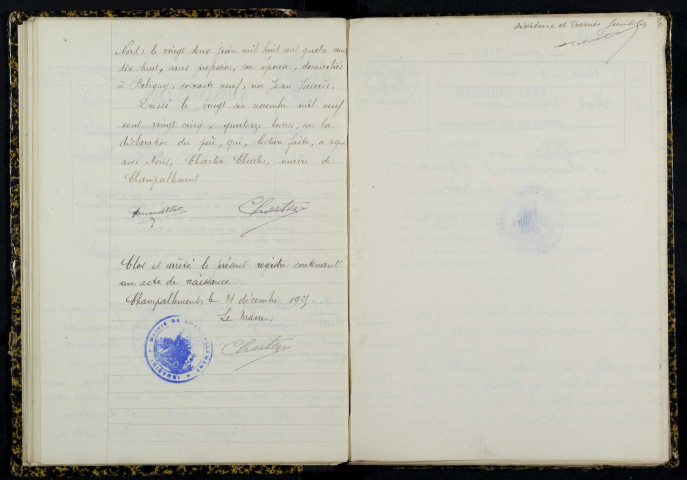 Nord, le vingt deux juin mil huit cent quatre vingt
dix huit, sans profession, son épouse, domiciliés
à Bobigny, soixante neuf, rue Jean Jaurès.
Dressé le vingt six novembre mil neuf
cent vingt cinq, quatorze heures, sur la
déclaration du père, qui, lecture faite, a signé
avec Nous, Charles, maire de
Champallement
Clos et arrêté le présent registre contenant
un acte de naissance.
Champallement, le 31 décembre 1925
Le Maire:
MAIRIE DE CHAMPALLEMENT (NIÈVRE)
et dernier feuillet